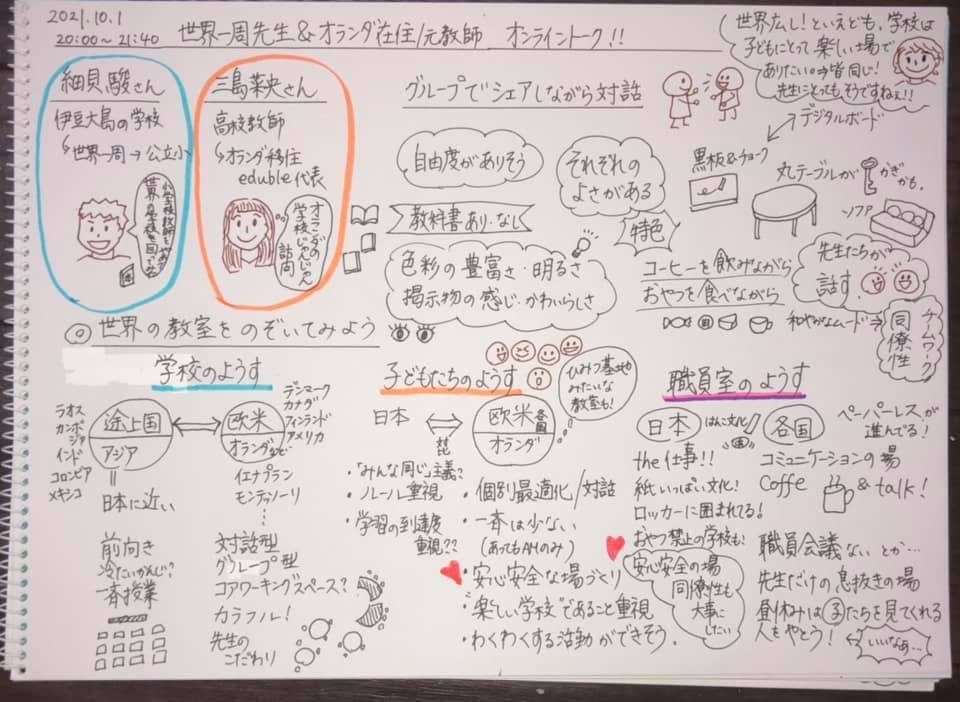 2021.10.1
20:00〜21:40
世界一周先生&オランダ在住/元教師 オンライントーク!!
世界広し!といえども、学校は
子どもにとって楽しい場で
ありたい。⇒皆同じ!
先生にとってもそうですねぇ!!
細貝駿さん
伊豆大島の学校
↳世界一周→公立小
小学校教師をやめて
世界の学校を回ってみた
三島菜央さん
高校教師
↳オランダ移住
eduble代表
オランダの
学校じゃんじゃん
訪問
グループでシェアしながら対話
自由度がありそう
それぞれの
よさがある
教科書あり・なし
特色
色彩の豊富さ・明るさ
掲示物の感じ・かわいらしさ
デジタルボード
黒板&チョーク
丸テーブルが
かぎがも。
ソファ
コーヒーを飲みながら
おやつを食べながら
先生たちが
話す。
和やかなムード⇒
同僚性
チームワーク
◎世界の教室をのぞいてみよう
学校のようす
ラオス
カンボジア
インド
コロンビア
メキシコ
途上国
アジア
日本に近い
前向き
冷たいかんじ?
一斉授業
欧米
オランダなど
デンマーク
カナダ
フィンランド
アメリカ
イエナプラン
モンテッソーリ
対話型
グループ型
コアワーキングスペース?
カラフル!
先生の
こだわり
子どもたちのようす
ひみつ基地
みたいな
教室も!
日本
比較
欧米各国
オランダ
・「みんな同じ」主義?
・ルール重視
・学習の到達度
重視??
・個別最適化/対話
・一斉は少ない
(あってもAMのみ)
・安心安全な場づくり
・"楽しい学校"であること重視
・わくわくする活動ができそう.
職員室のようす
日本
はんこ文化
the 仕事!!
紙いっぱい文化!
ロッカーに囲まれてる!
おやつ禁止の学校も!
安心安全の場
同僚性も
大事に
したい
各国
ペーパーレスが
進んでる!
コミュニケーションの場
Coffe & talk!
職員会議ないとか…
先生だけの息抜きの場
昼休みは子たちを見てくれる
人をやとう!
いいなぁ…